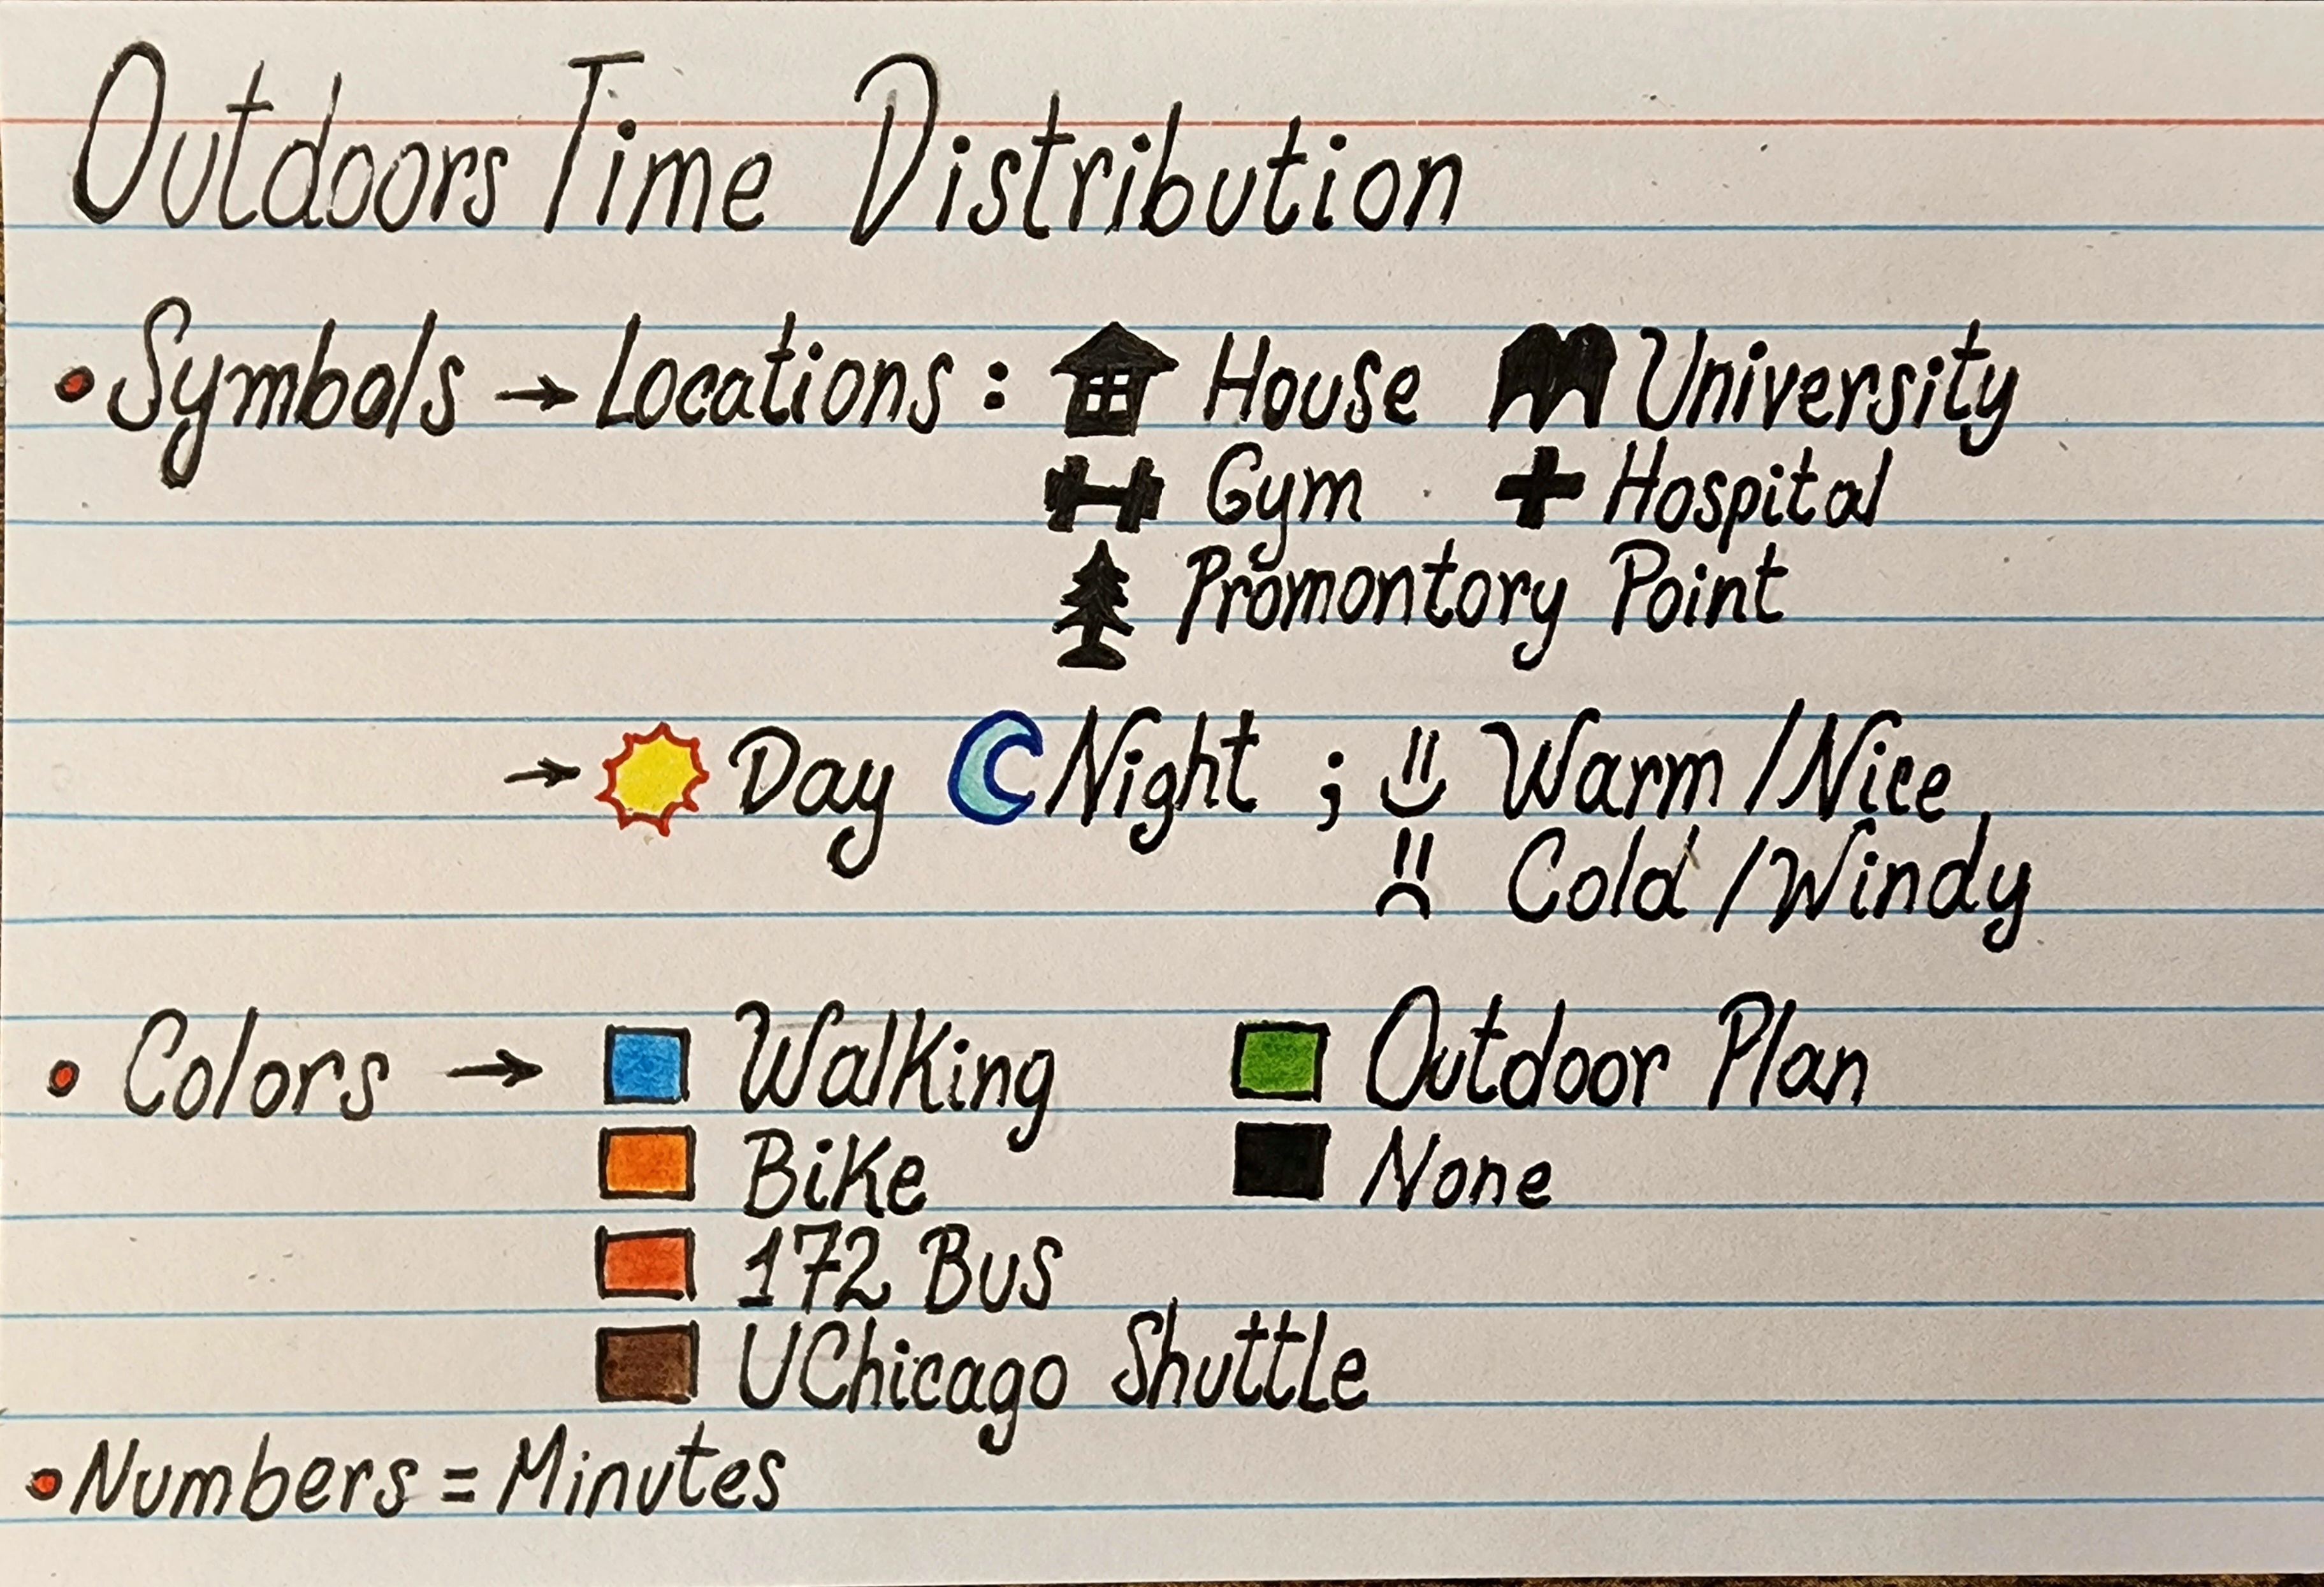 Outdoors Time Distribution
• Symbols → Locations : House University
Gym + Hospital
Promontory Point
→ Day Night ; Warm / Nice
Cold / Windy
• Colors → Walking Outdoor Plan
Bike None
172 Bus
UChicago Shuttle
• Numbers = Minutes